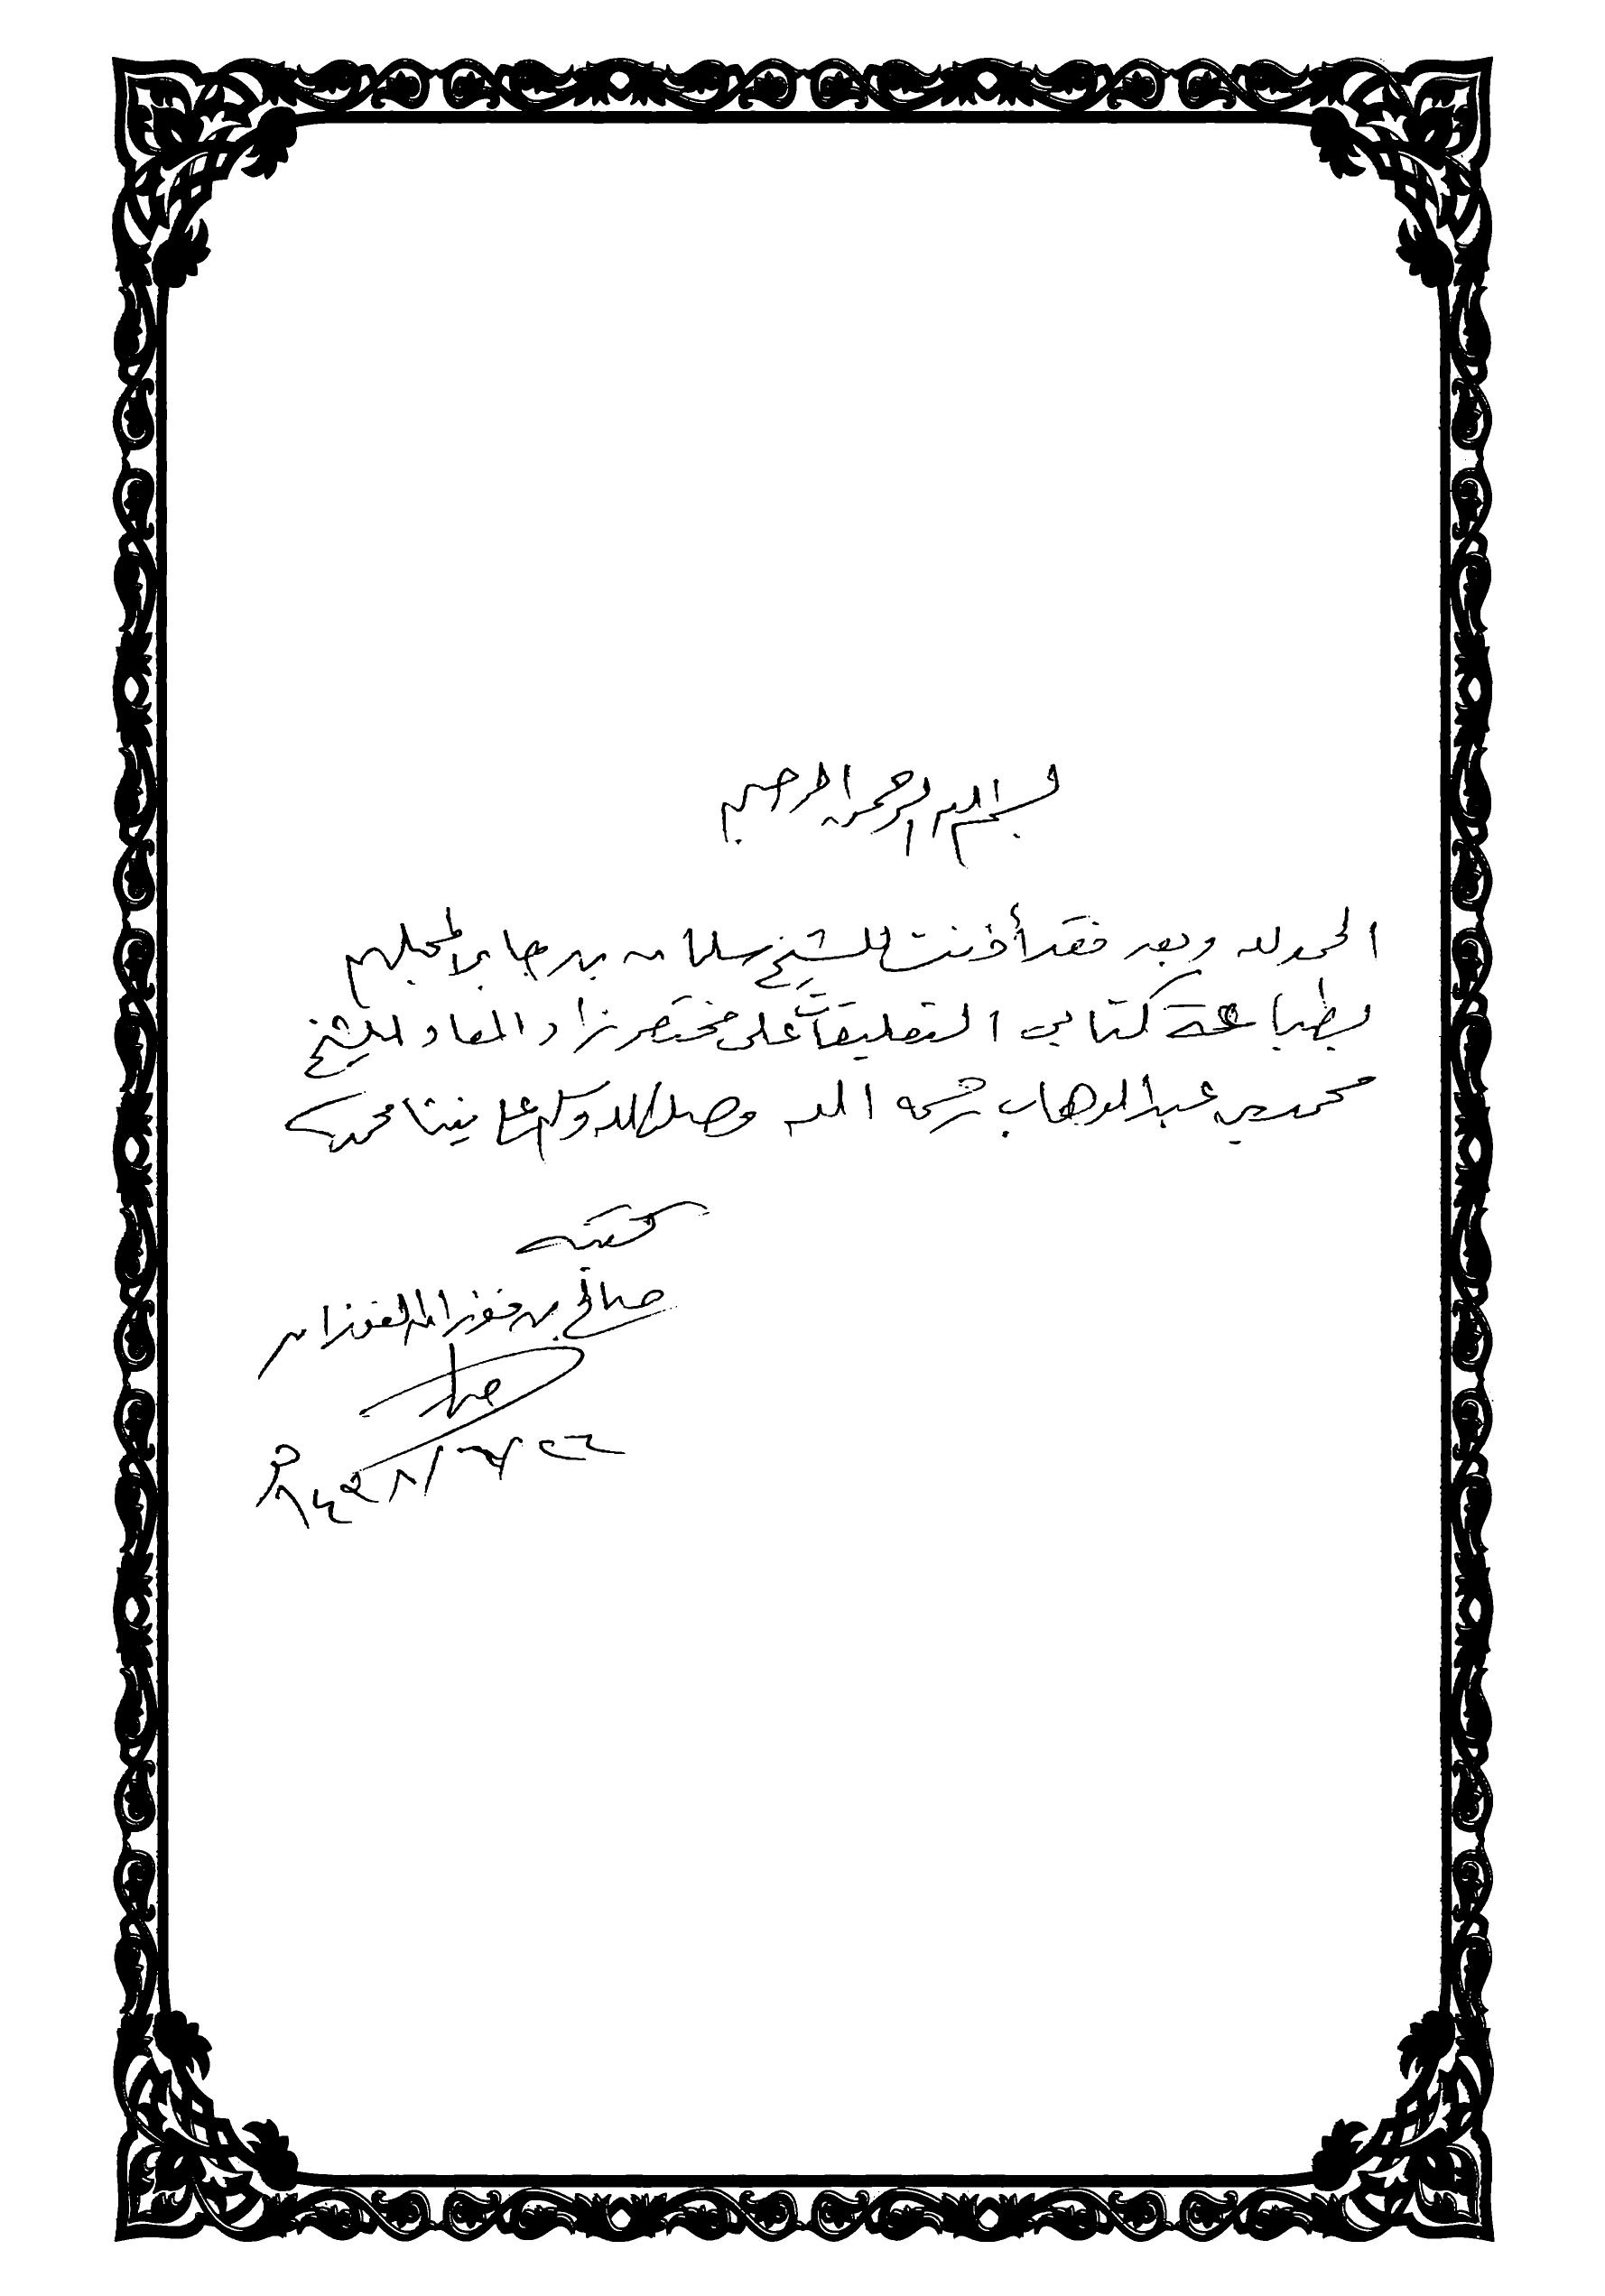 بسم الله الرحمن الرحيم
الحمد لله وبعد فقد أذنت للشيخ سلمان بن جابر المجلهم
بطباعة كتابي التعليقات على مختصر زاد المعاد للشيخ
محمد بن عبد الوهاب رحمه الله وصلى الله وسلم على نبينا محمد
كتبه
صالح بن فوزان الفوزان
١٤٣٨/ هـ